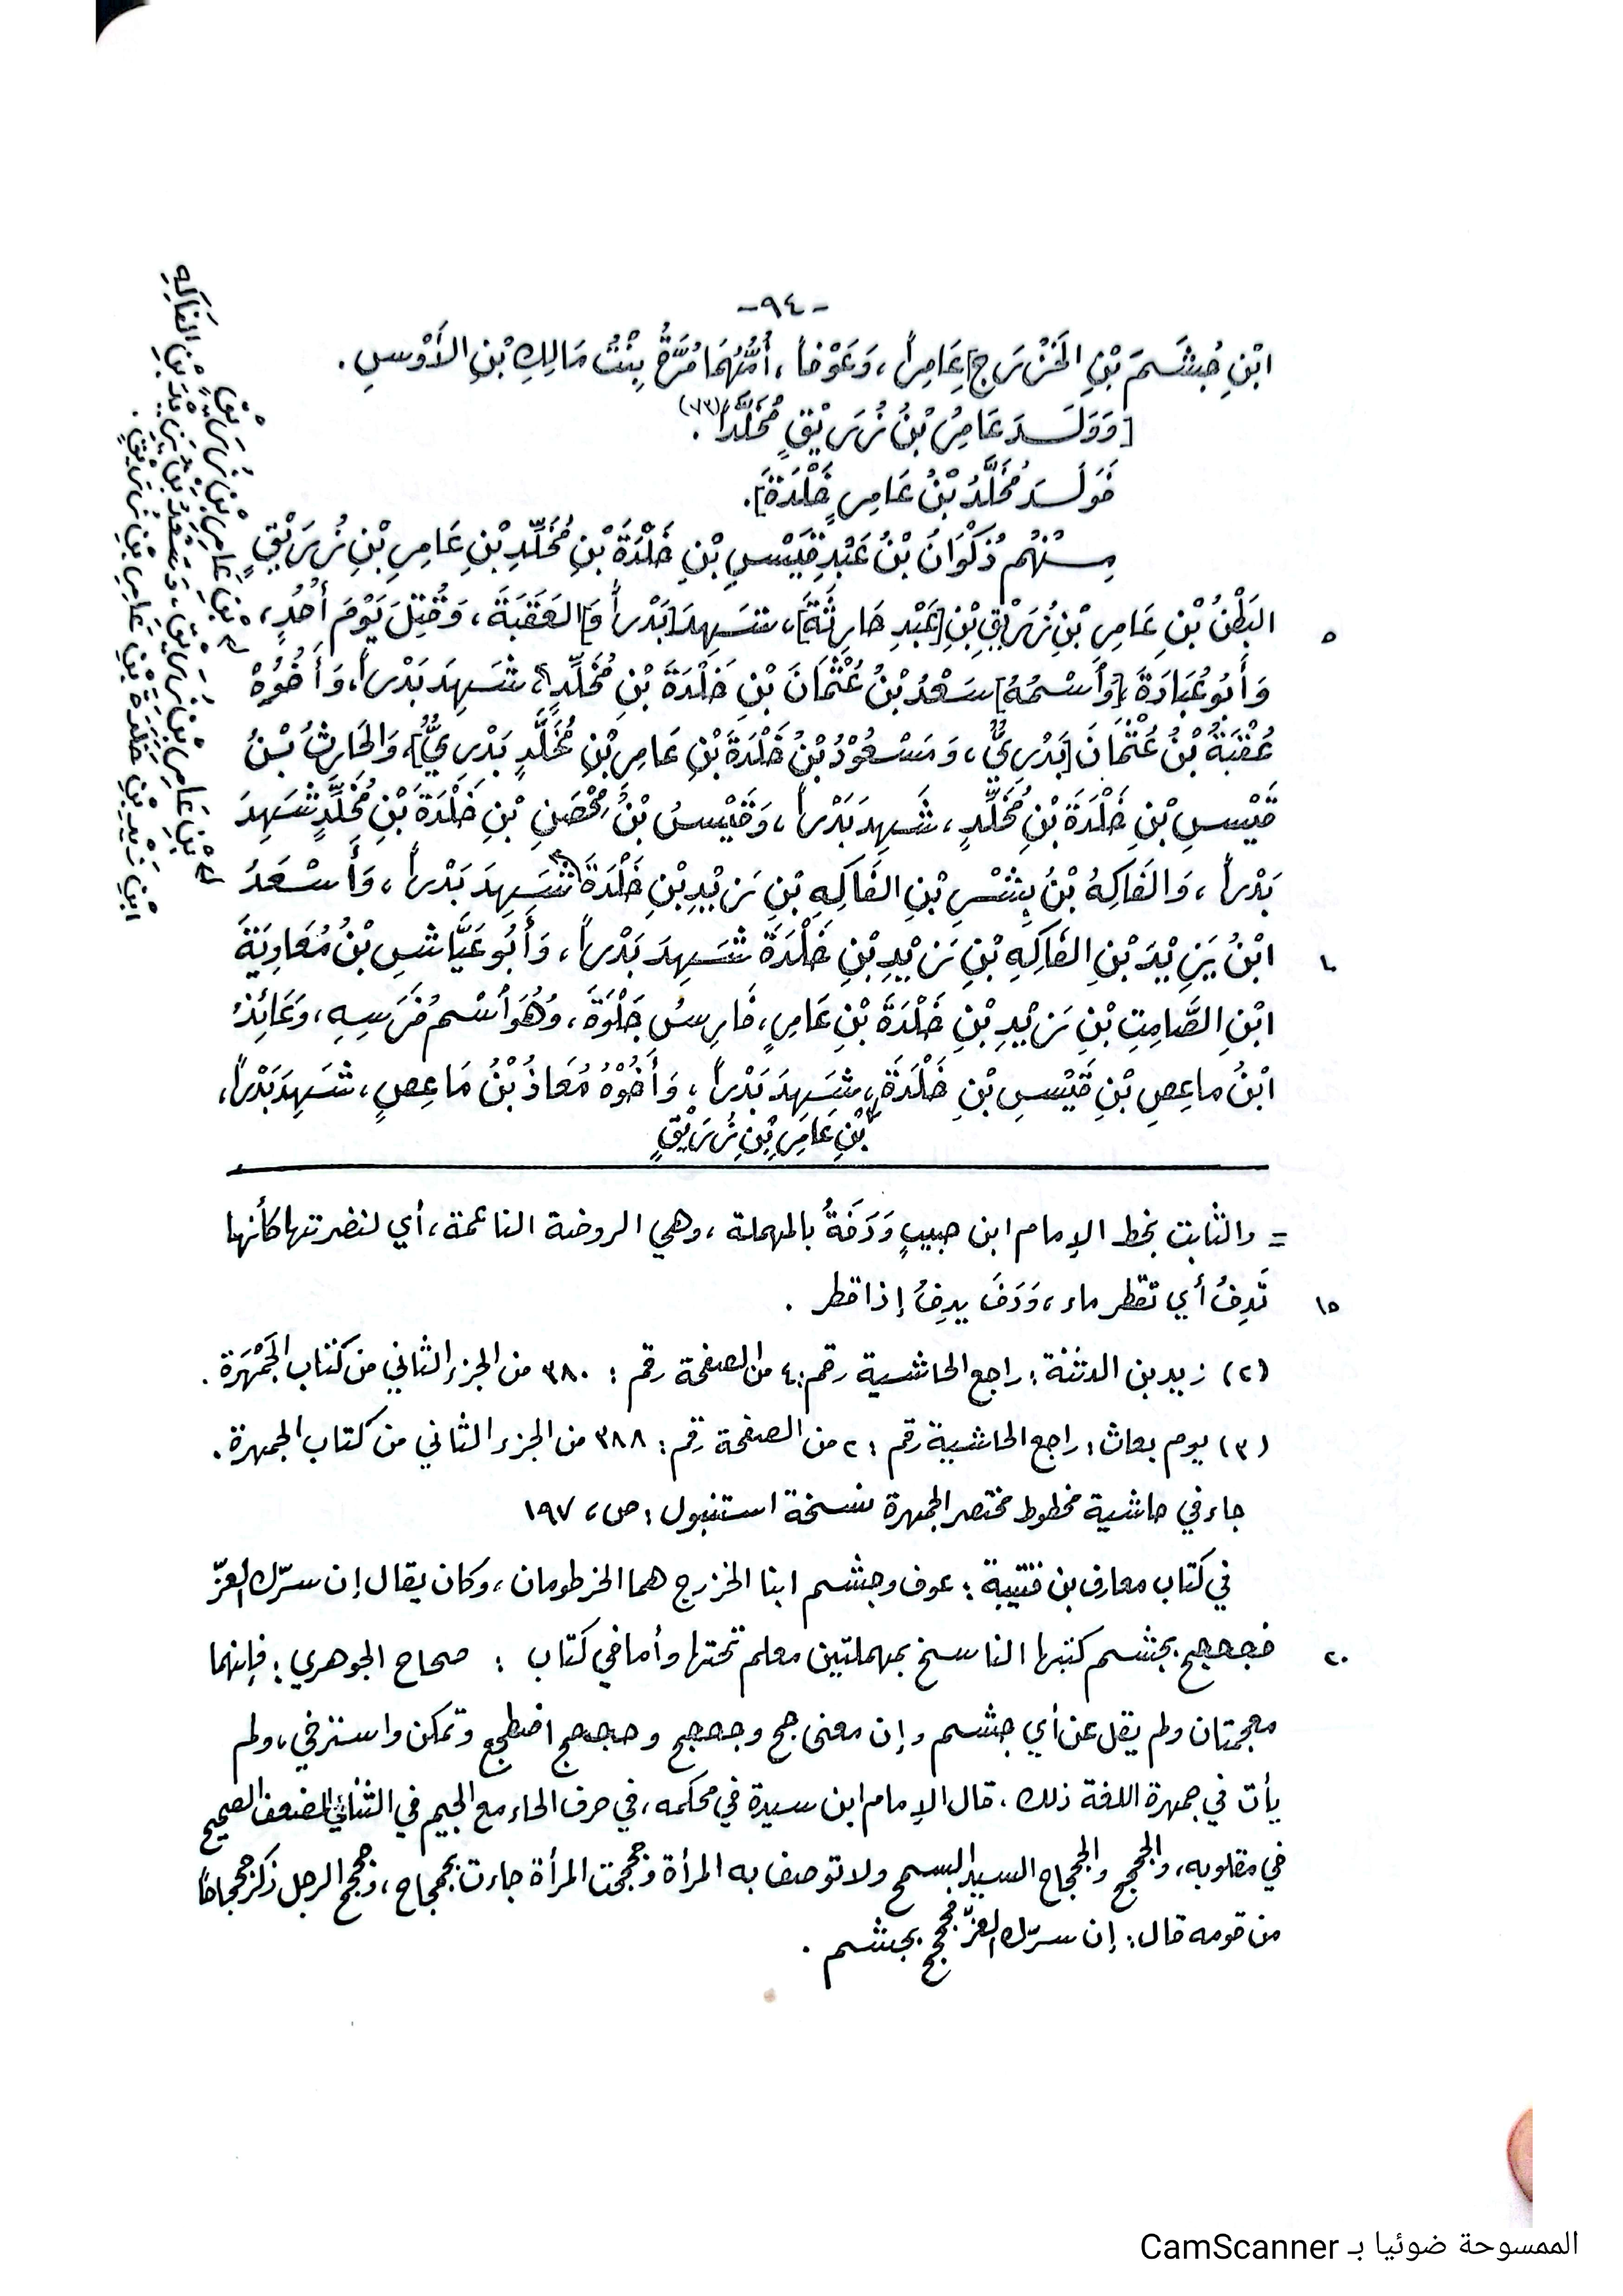 -٩٤-
ابْنِ جُشَمَ بْنِ الخَزْرَجِ] عَامِراً، وَعَوْفاً، أُمُّهُمَا مُرَّةُ بِنْتُ مَالِكِ بْنِ الأَوْسِ.
[وَوَلَدَ عَامِرُ بْنُ زُرَيْقٍ مُخَلَّداً (٧٣).
فَوَلَدَ مُخَلَّدُ بْنُ عَامِرٍ خَلْدَةَ].
مِنْهُم ذَكْوَانُ بْنُ عَبْدِ قَيْسِ بْنِ خَلْدَةَ بْنِ مُخَلَّدِ بْنِ عَامِرِ بْنِ زُرَيْقٍ
البَطْنُ بْنِ عَامِرِ بْنِ زُرَيْقِ بْنِ [عَبْدِ حَارِثَةَ]، شَهِدَ [بَدْراً وَ] العَقَبَةَ، وَقُتِلَ يَوْمَ أُحُدٍ، ٥
وَأَبُو عُبَادَةَ [وَاسْمُهُ] سَعْدُ بْنُ عُثْمَانَ بْنِ خَلْدَةَ بْنِ مُخَلَّدٍ، شَهِدَ بَدْراً، وَأَخُوْهُ
عُقْبَةُ بْنُ عُثْمَانَ [بَدْرِيٌّ، وَمَسْعُوْدُ بْنُ خَلْدَةَ بْنِ عَامِرِ بْنِ مُخَلَّدٍ بَدْرِيٌّ]، وَالحَارِثُ بْنُ
قَيْسِ بْنِ خَلْدَةَ بْنِ مُخَلَّدٍ، شَهِدَ بَدْراً، وَقَيْسُ بْنُ مُحْصَنِ بْنِ خَلْدَةَ بْنِ مُخَلَّدٍ شَهِدَ
بَدْراً، وَالفَاكِهُ بْنُ بِشْرِ بْنِ الفَاكِهِ بْنِ زَيْدِ بْنِ خَلْدَةَ شَهِدَ بَدْراً، وَأَسْعَدُ
ابْنُ يَزِيْدَ بْنِ الفَاكِهِ بْنِ زَيْدِ بْنِ خَلْدَةَ شَهِدَ بَدْراً، وَأَبُو عَيَّاشِ بْنُ مُعَاوِيَةَ ١٠
ابْنِ الصَّامِتِ بْنِ زَيْدِ بْنِ خَلْدَةَ بْنِ عَامِرٍ، فَارِسُ جَلْوَةَ، وَهُوَ اسْمُ فَرَسِهِ، وَعَائِذُ
ابْنُ مَاعِصِ بْنِ قَيْسِ بْنِ خَلْدَةَ، شَهِدَ بَدْراً، وَأَخُوْهُ مُعَاذُ بْنُ مَاعِصٍ، شَهِدَ بَدْراً،
بْنِ عَامِرِ بْنِ زُرَيْقٍ
بْنِ عَامِرِ بْنِ زُرَيْقٍ
بْنِ عَامِرِ بْنِ زُرَيْقٍ، وَسَعْدُ بْنُ يَزِيْدَ بْنِ الفَاكِهِ
ابْنِ زَيْدِ بْنِ خَلْدَةَ بْنِ عَامِرِ بْنِ زُرَيْقٍ.
= والثابت بخط الإمام ابن حبيب وَدَفَةُ بالمهملة، وهي الروضة الناعمة، أي لنضرتها كأنها
تَدِفُ أي تقطر ماء، وَدَفَ يدِفُ إذا قطر. ١٥
(٢) زيد بن الدثنة: راجع الحاشية رقم: ٤ من الصفحة رقم: ٣٨٠ من الجزء الثاني من كتاب الجَمْهَرة.
(٣) يوم بعاث: راجع الحاشية رقم: ٢ من الصفحة رقم: ٣٨٨ من الجزء الثاني من كتاب الجمهرة.
جاء في حاشية مخطوط مختصر الجمهرة نسخة استنبول: ص، ١٩٧
في كتاب معارف بن قتيبة: عوف وجشم ابنا الخزرج هما الخرطومان، وكان يقال إن سرّك العزّ
فجحجح بجشم كتبها الناسخ بمهملتين معلم تحتها وأما في كتاب: صحاح الجوهري: فإنهما ٢٠
معجمتان ولم يقل عن أي جشم وإن معنى جخ وجخجخ وحجحج اضطجع وتمكن واسترخى، ولم
يأت في جمهرة اللغة ذلك. قال الإمام ابن سيدة في محكمه، في حرف الحاء مع الجيم في الثنائي المضعف الصحيح
في مقلوبه، والجحجح والجحجاح السيد السمح ولا توصف به المرأة وجحجحت المرأة جاءت بجحجاح، وجحجح الرجل ذكر جحجاحًا
من قومه قال: إن سرّك العزّ فجحجح بجشم.
الممسوحة ضوئيا بـ CamScanner